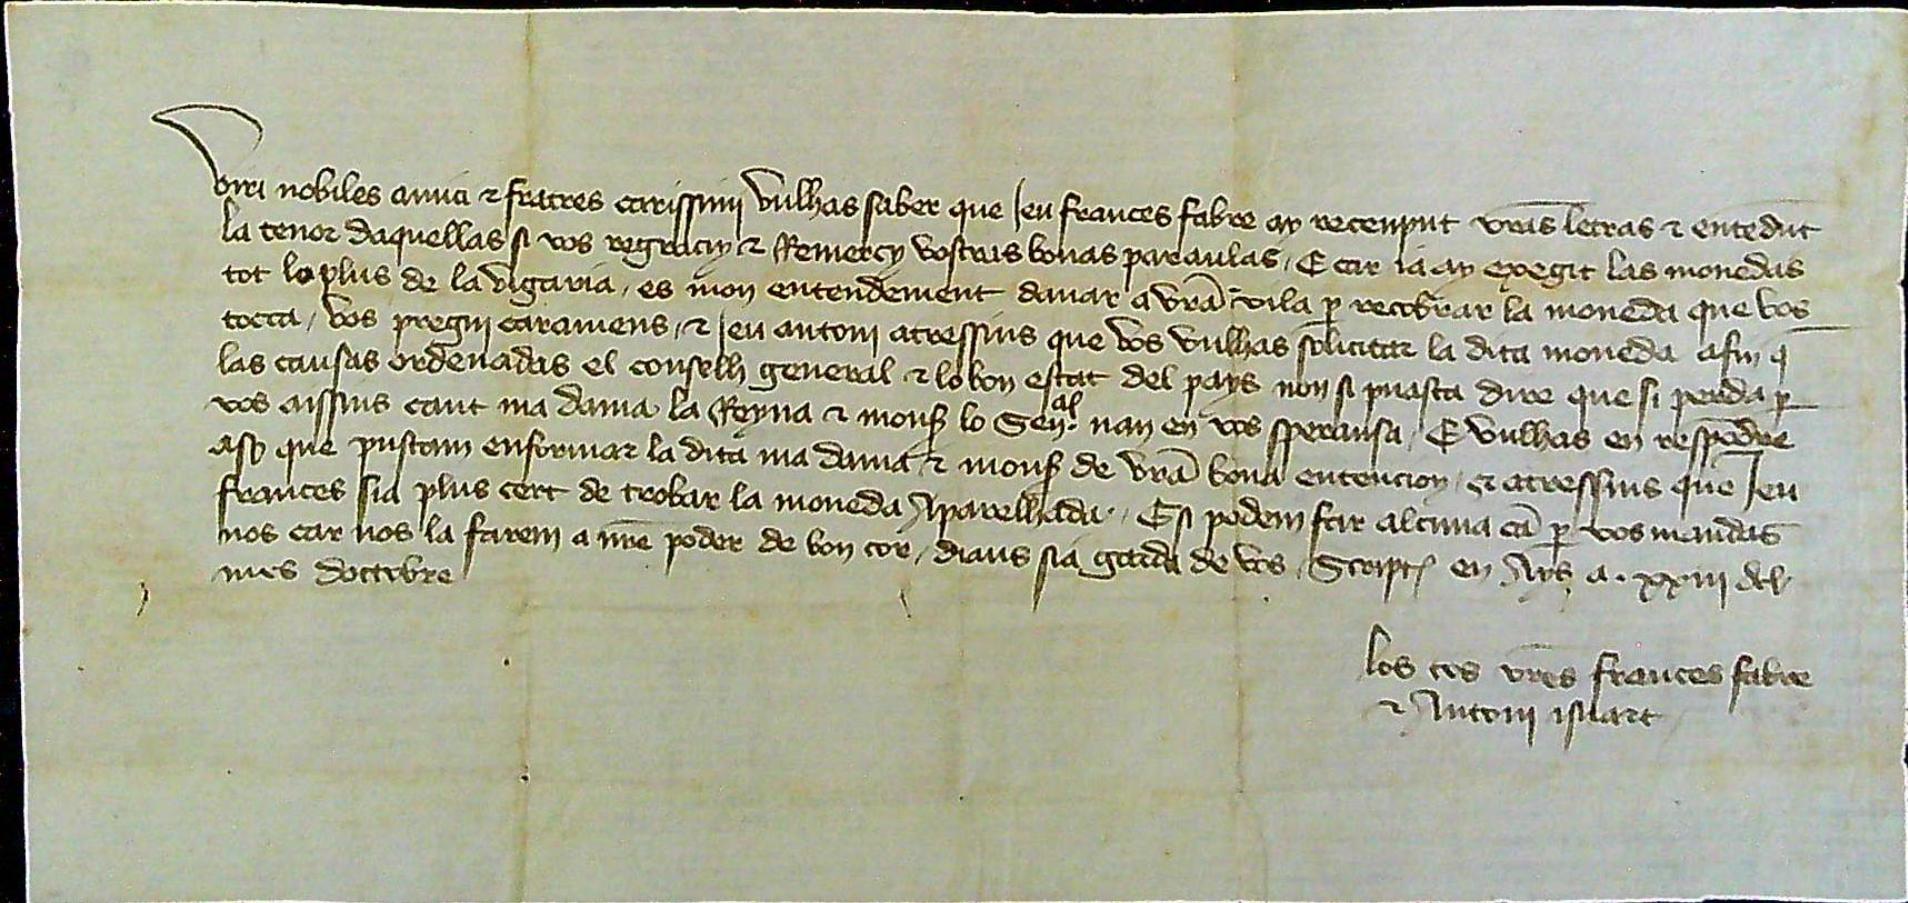 Viri nobiles amici & fratres carissimi vulhas saber que Jeu frances fabre ay receuput vrās letras & entēdut
la tenor daquellas si vos regraciy & Remercy vostras bonas paraulas, E car ia ay exegit las monedas
tot lo plus de la vigaria, es mon entendement davar a vrā vila ꝑ recobrar la moneda que vos
tocca, vos preguj caramens, & Jeu antoni atressins que vos vulhas solicitar la dita moneda afin q̄
las causas ordenadas el conselh general & lo bon estat del pays non si puasca dire que si perda ꝑ
vos aissins cant ma dama la Reyna & mons lo Senal. nan en vos speransa, E vulhas en respōdre
aso que puscam enformar la dita ma dama & mons de vrā bona entencion, & atressins que Jeu
frances sia plus cert de trobar la moneda Aparelhada, E si podem far alcuna cā ꝑ vos mandas
nos car nos la farem a nr̄e poder de bon cor, dieus sia garda de vos, Script en Ays a. xxiii del
mes doctobre
los tos vrēs frances fabre
& Antoni isnart